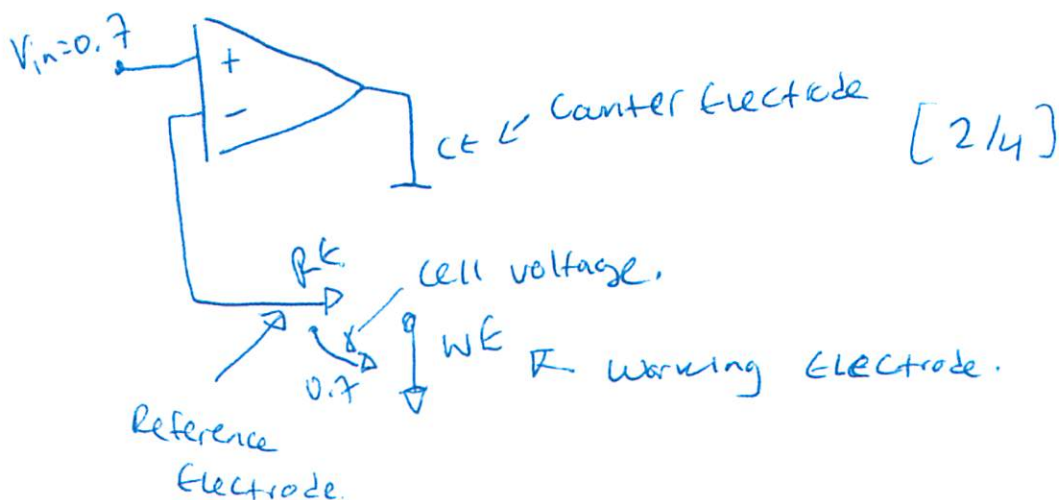 Vin=0.7
+
-
CE
Counter Electrode
[2/4]
RE
cell voltage.
0.7
WE
Working Electrode.
Reference
Electrode.